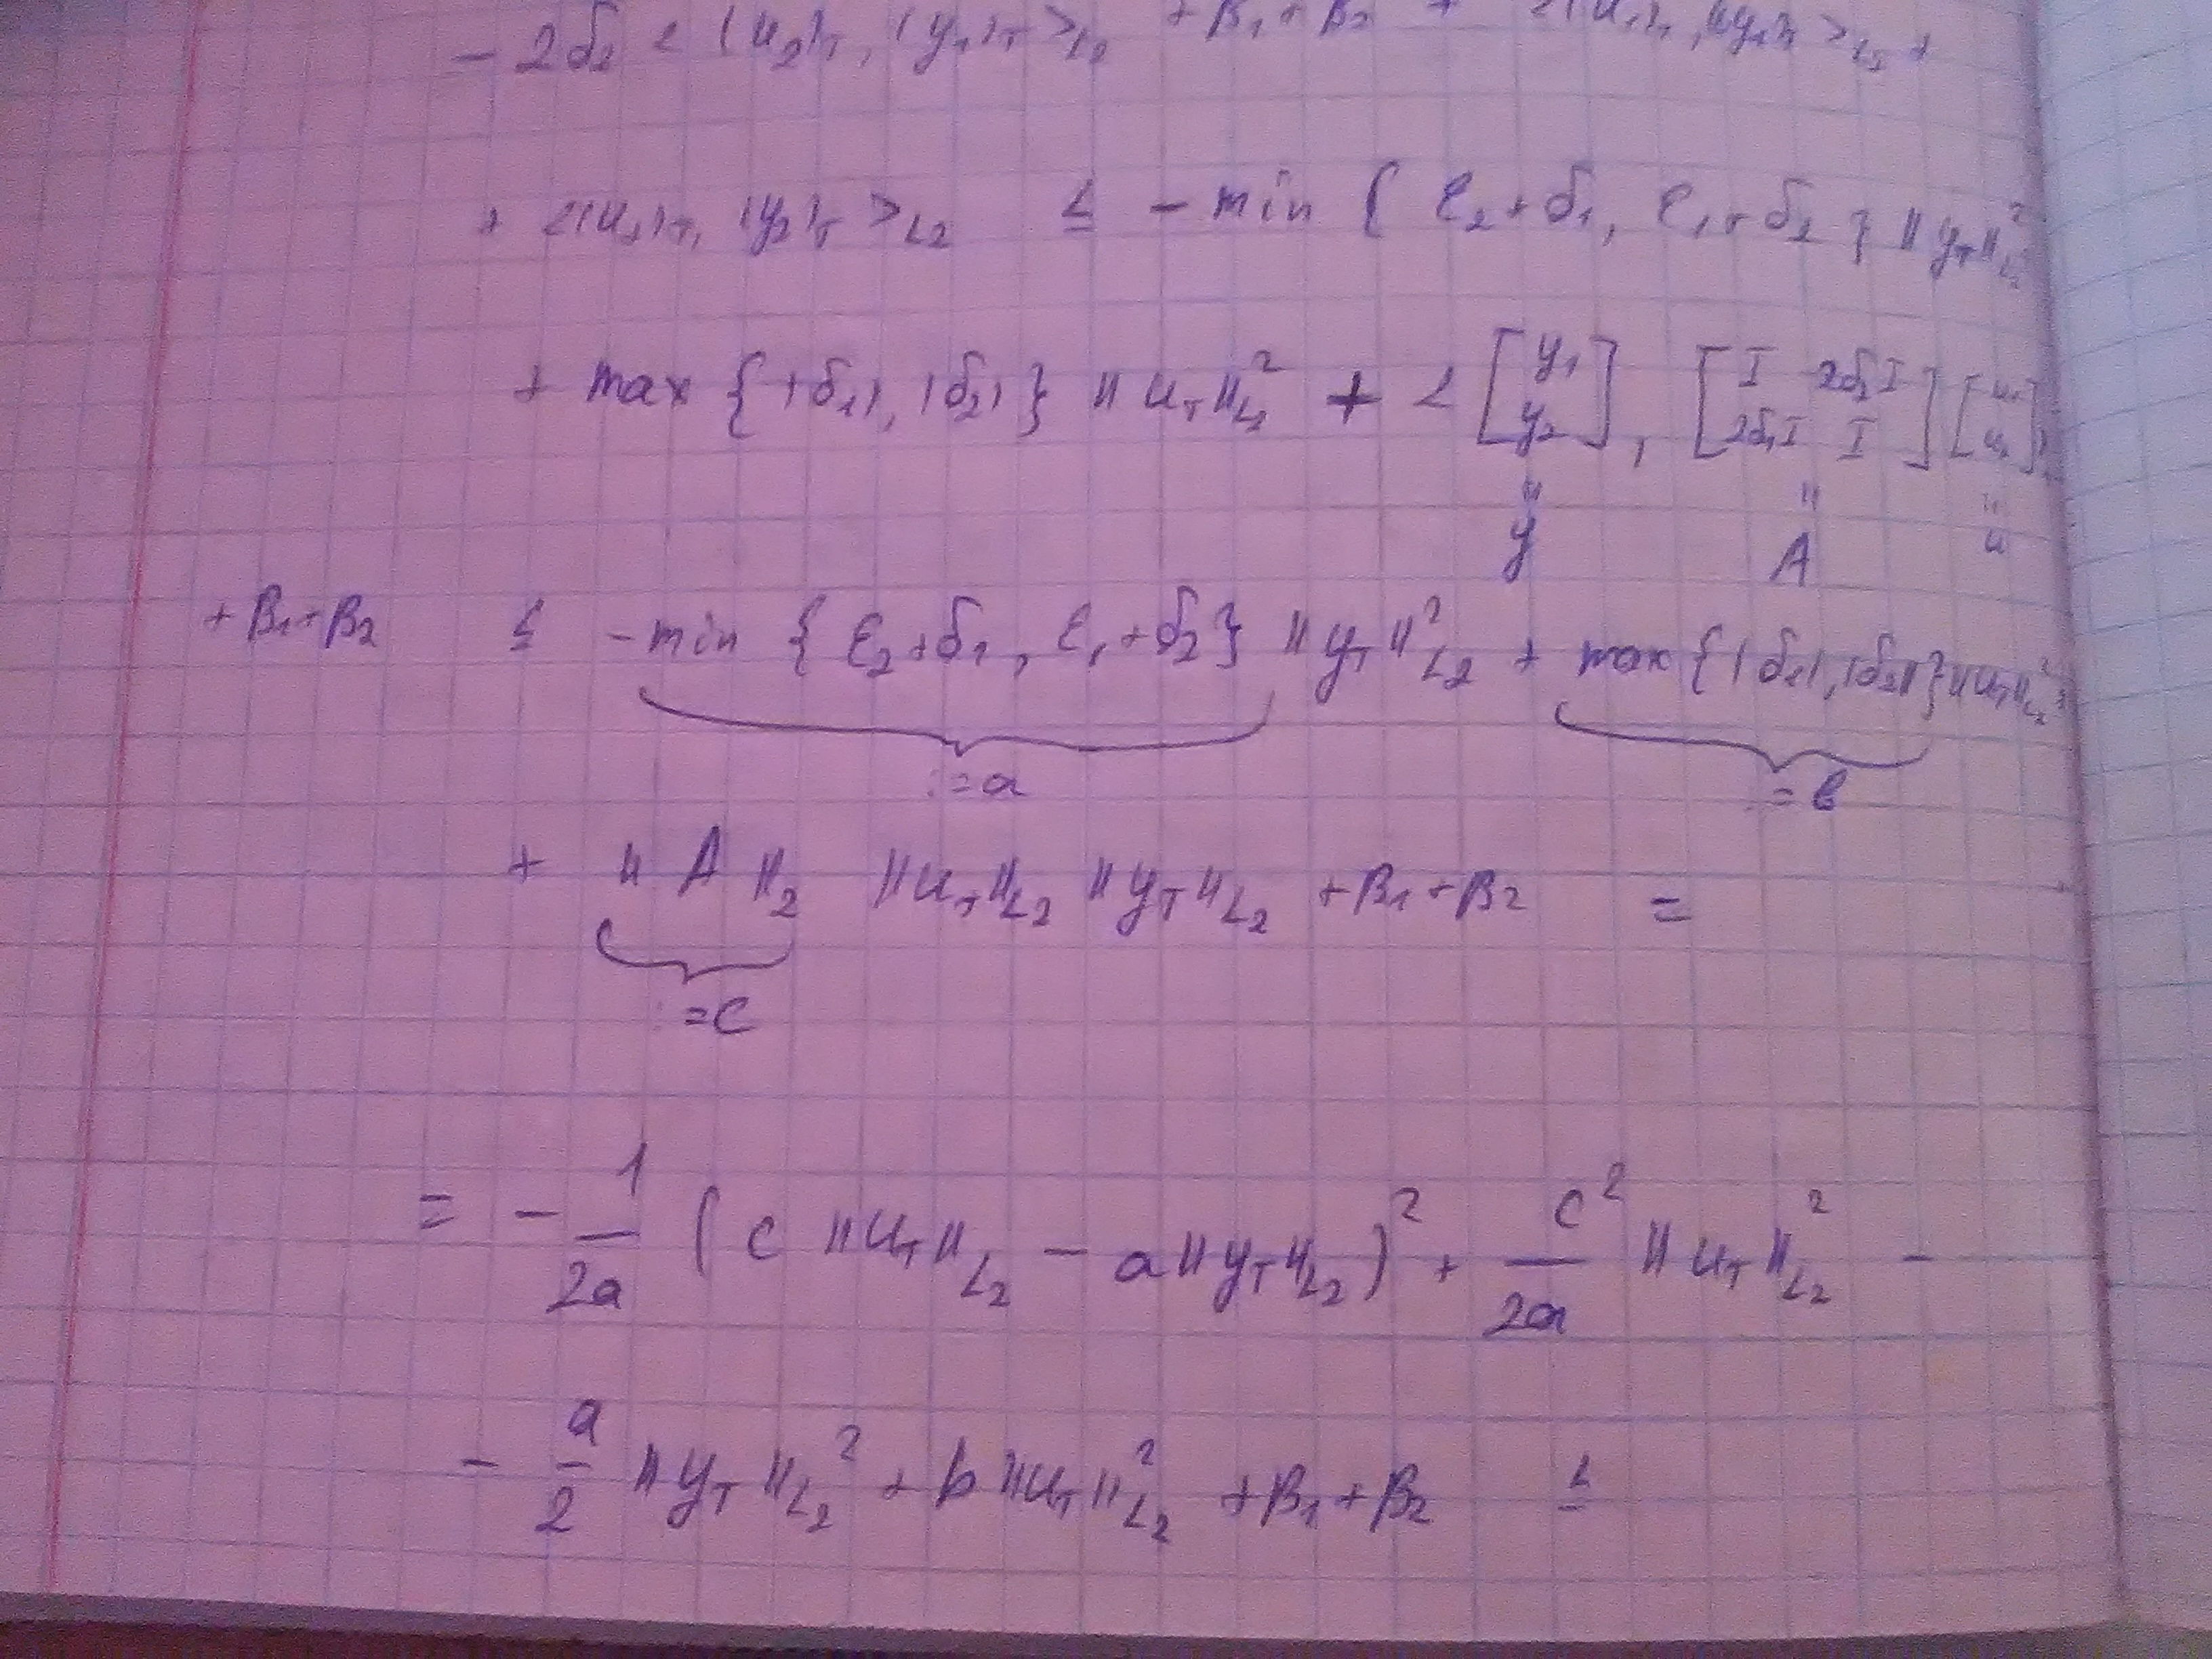 - 2δ₂ < (u₂)_T, (y₁)_T >_L₂ + β₁ + β₂ + <(u₁)_T, (y₁)_T >_L₂ +
+ <(u₂)_T, (y₂)_T >_L₂ ≤ - min { ε₂+δ₁, ε₁+δ₂ } ||y_T||²_L₂
+ max {|δ₁|, |δ₂|} ||u_T||²_L₂ + < [y₁ y₂], [I 2δ₂I 2δ₁I I] [u₁ u₂]
" y " A " u
+ β₁+β₂ ≤ - min { ε₂+δ₁, ε₁+δ₂ } ||y_T||²_L₂ + max {|δ₁|, |δ₂|} ||u_T||²_L₂
:=a :=b
+ ||A||₂ ||u_T||_L₂ ||y_T||_L₂ + β₁+β₂ =
:=c
= - 1/2a (c ||u_T||_L₂ - a ||y_T||_L₂)² + c²/2a ||u_T||²_L₂ -
- a/2 ||y_T||²_L₂ + b ||u_T||²_L₂ + β₁+β₂ ≤